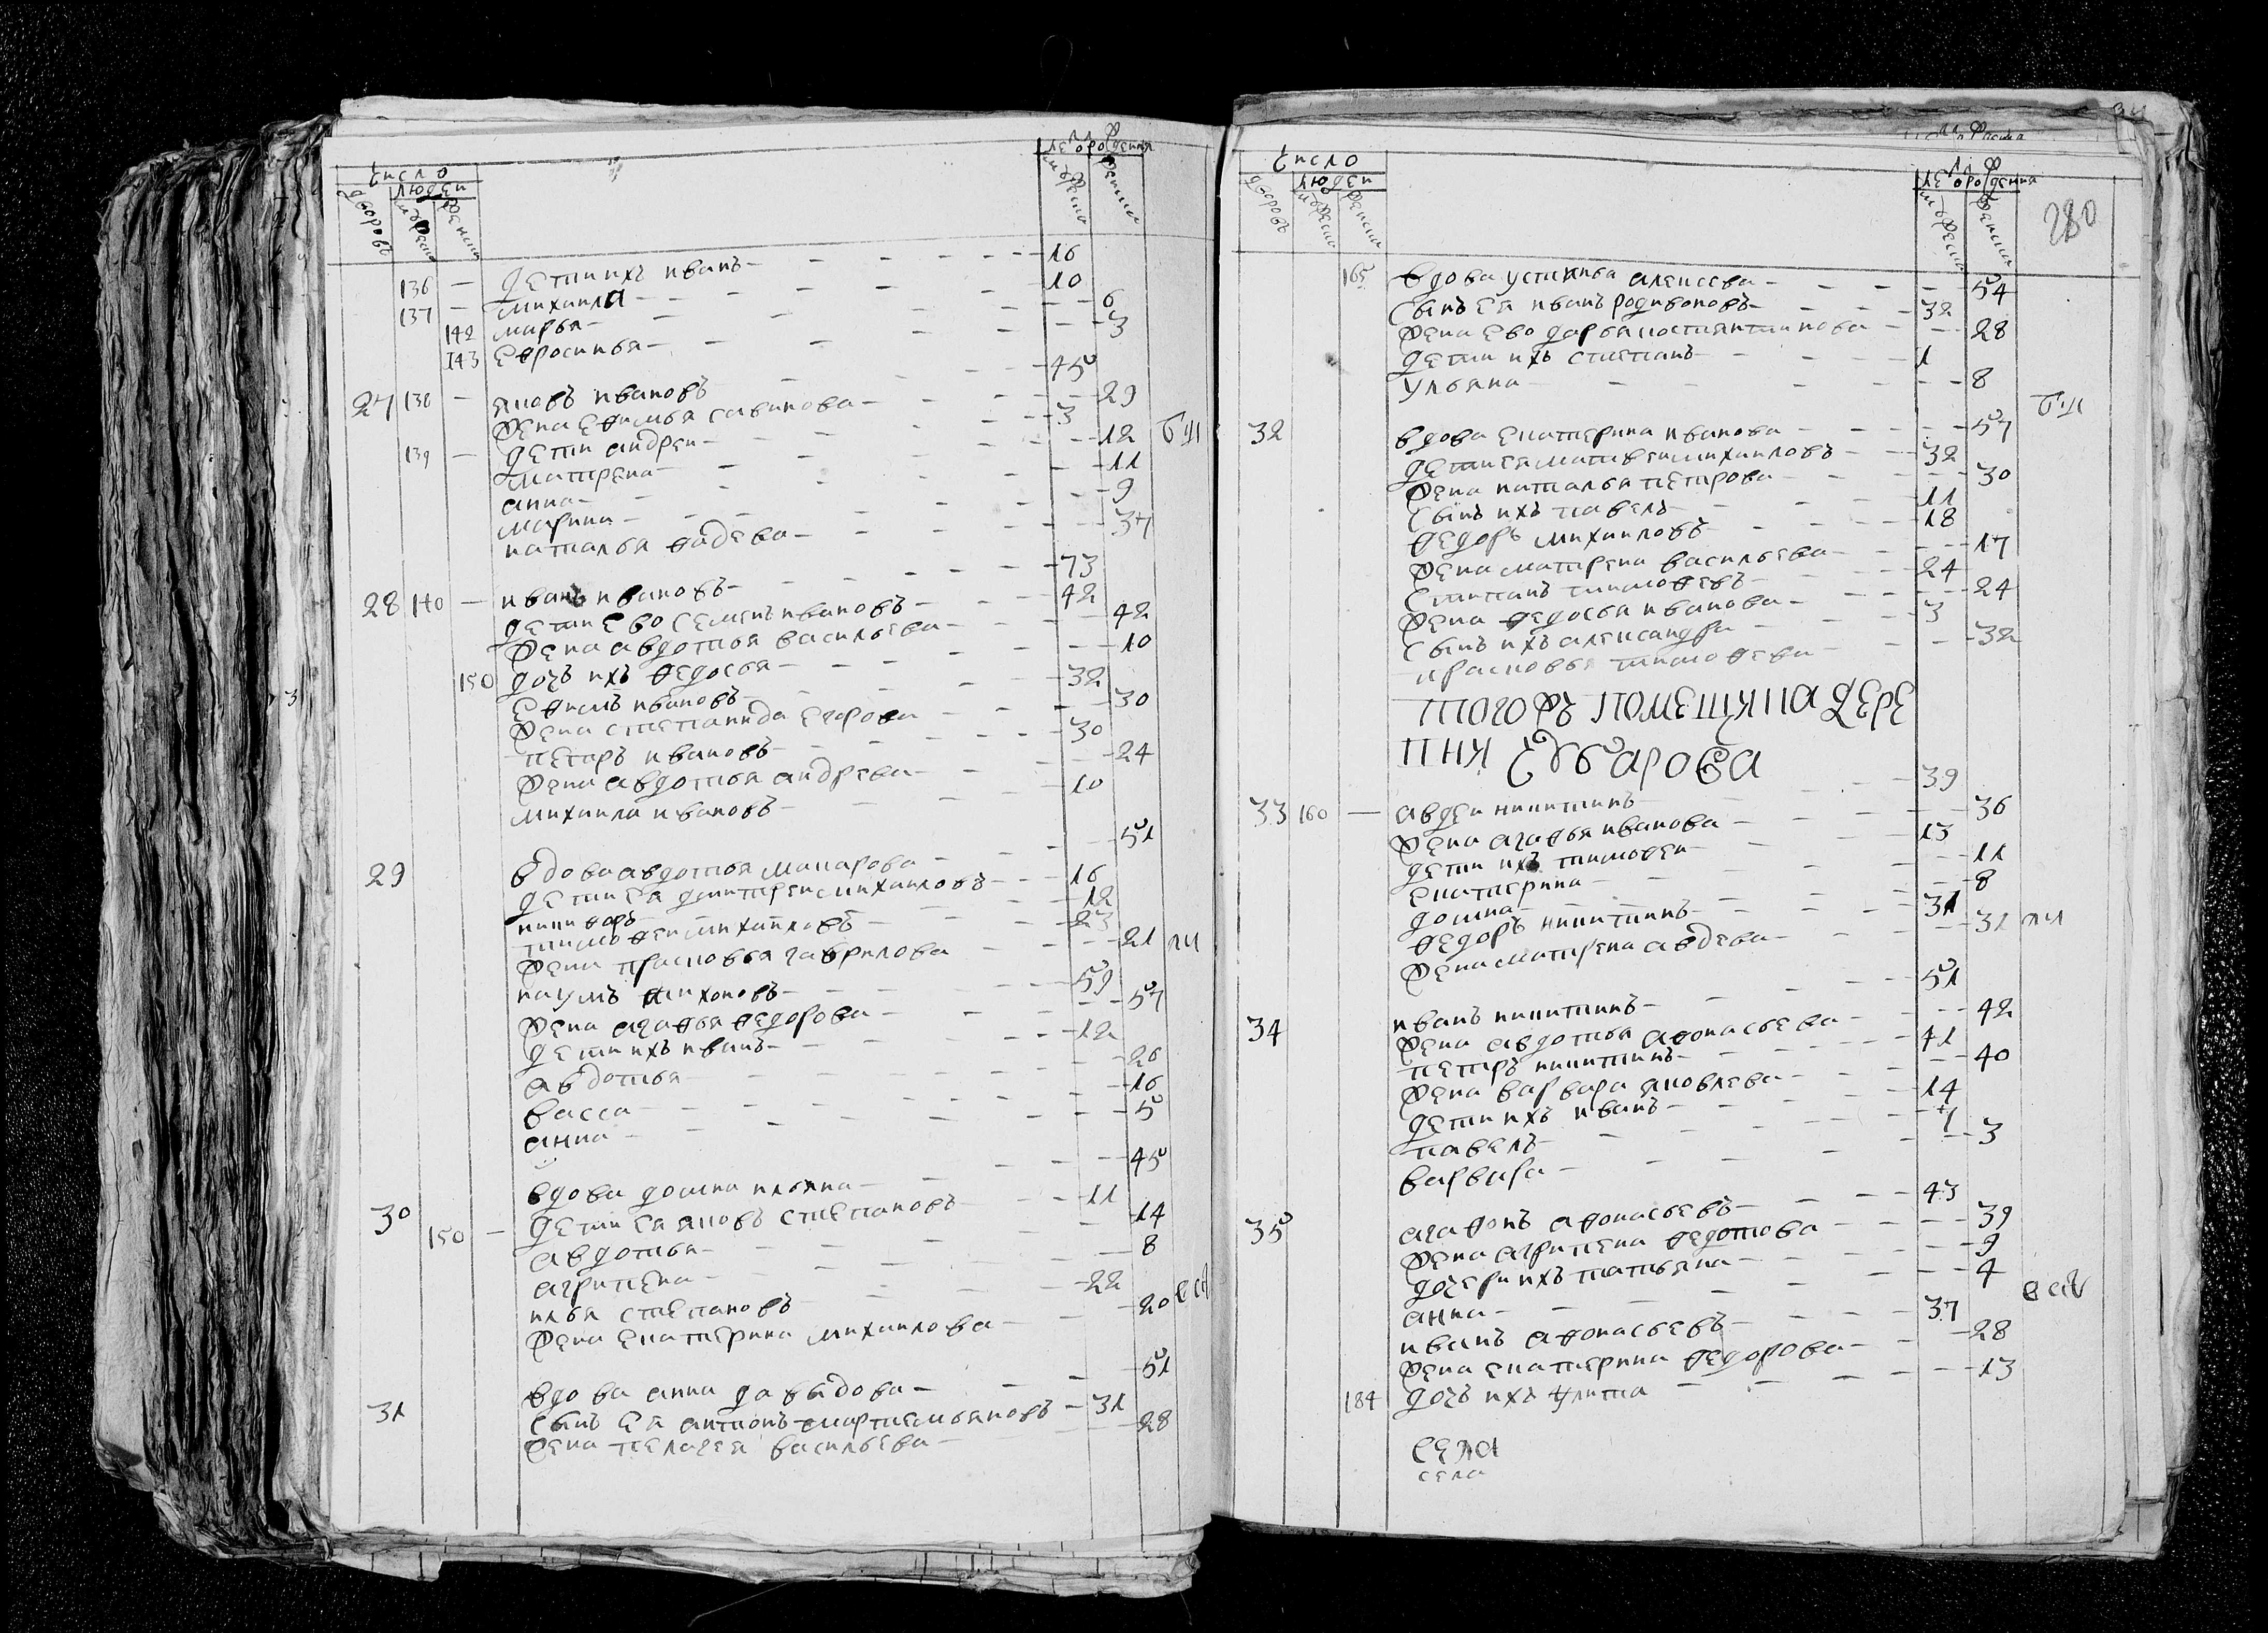 число
люде
лѣ
дворовъ
мужеска
женска
136 — дети ихъ иванъ — 16
137 — михаила — 10
142 марья — 6
143 Евросинья — 3
27 138 — яковъ ивановъ — 45
жена Ефимья савинова — 29
139 — дети андреи — 3
матрена — 12
анна — 11
марина — 9
наталья фадева — 37
28 140 — иванъ ивановъ — 73
дети Ево семенъ ивановъ — 42
жена авдотья васильева — 42
150 дочь ихъ федосья — 10
Ефимъ ивановъ — 32
жена степанида Егорова — 30
петръ ивановъ — 30
жена авдотья андрева — 24
михаила ивановъ — 10
29 вдова авдотья макарова — 51
дети Ея дмитреи михаиловъ — 16
никифоръ — 12
тимофеи михаиловъ — 23
жена прасковья гаврилова — 21
наумъ тихоновъ — 59
жена агафья федорова — 57
дети ихъ иванъ — 12
авдотья — 26
васса — 16
анна — 5
30 вдова домна ильина — 45
150 — дети Ея яковъ степановъ — 11
авдотья — 14
агрипена — 8
илья степановъ — 22
жена Екатерина михаилова — 20
31 вдова анна давыдова — 51
сынъ Ея антонъ мартемьяновъ — 31
жена пелагея васильева — 28
280
число
люде
дворовъ
мужеска
женска
165 вдова устинья алексеева — 54
сынъ Ея иванъ родивоновъ — 32
жена Ево дарья костянтинова — 28
дети ихъ степанъ — 1
ульяна — 8
32 вдова Екатерина иванова — 57
дети Ея матвеи михаиловъ — 32
жена наталья петрова — 30
сынъ ихъ павелъ — 11
федоръ михаиловъ — 18
жена матрена васильева — 17
степанъ тимофевъ — 24
жена федосья иванова — 24
сынъ ихъ александра — 3
прасковья тимофева — 32
33 160 — авдеи никитинъ — 39
жена агафья иванова — 36
дети ихъ тимофеи — 13
Екатерина — 11
домна — 8
федоръ никитинъ — 31
жена матрена авдева — 31
34 иванъ никитинъ — 51
жена авдотья афонасьева — 42
петръ никитинъ — 41
жена варвара яковлева — 40
дети ихъ иванъ — 14
павелъ — 1
варвара — 3
35 агафонъ афонасьевъ — 43
жена агрипена федотова — 39
дочери ихъ татьяна — 9
анна — 4
иванъ афонасьевъ — 37
жена Екатерина федорова — 28
184 дочь ихъ улита — 13
села
села